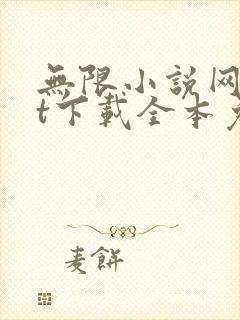 無限小説网
t下載全本
麦餅